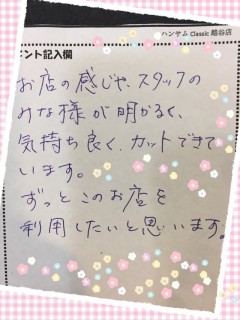 ハンサム Classic 越谷店
ント記入欄
お店の感じや、スタッフの
みな様が明かるく、
気持ち良く、カットできて
います。
ずっとこのお店を
利用したいと思います。